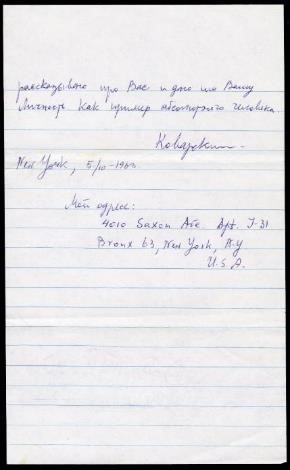 рассказывано про Вас и дано по Вашу
Личность как пример человека.
Коварский
New York, 5/10-1963
Мой адрес:
4010 Saxon Ave. Apt. J-31
Bronx 63, New York, N.Y
U.S.A.